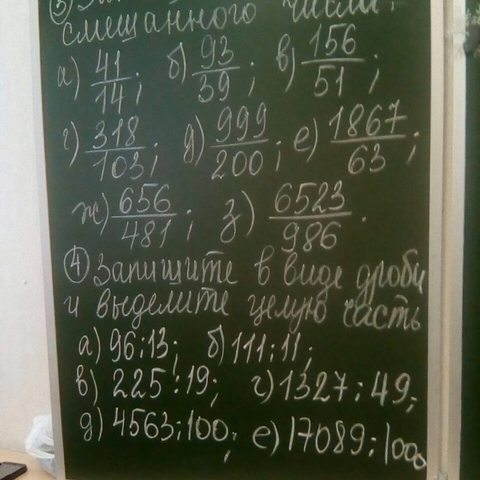 смешанного числа:
а) 41/14; б) 93/39; в) 156/51;
г) 318/103; д) 999/200; е) 1867/63;
ж) 656/481; з) 6523/986.
④ Запишите в виде дроби
и выделите целую часть
а) 96:13; б) 111:11;
в) 225:19; г) 1327:49;
д) 4563:100; е) 17089:1000